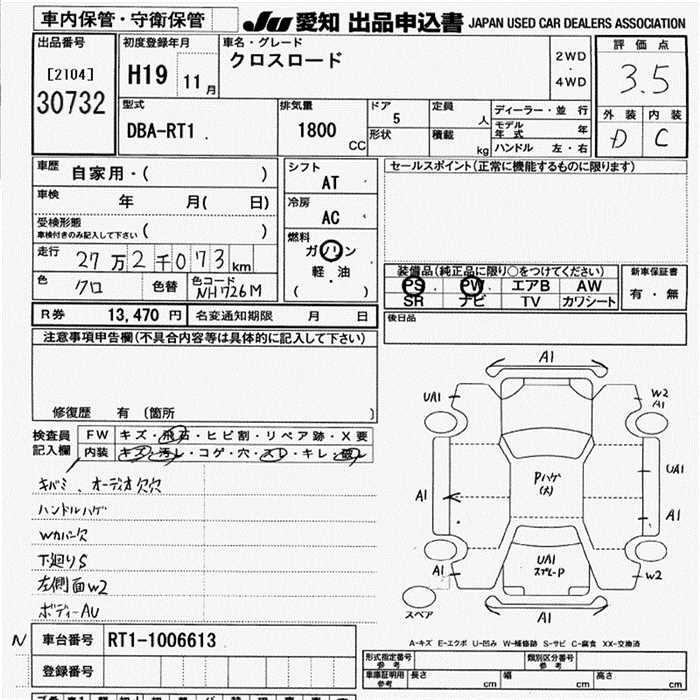 車内保管・守衛保管
JU 愛知 出品申込書 JAPAN USED CAR DEALERS ASSOCIATION
出品番号
[2104]
30732
初度登録年月
H19 11月
車名・グレード
クロスロード
2WD
・
4WD
評価点
3.5
外装 内装
D C
型式
DBA-RT1
排気量
1800 CC
ドア
5
形状
定員
人
積載
kg
ディーラー・並行
モデル年式 年
ハンドル 左・右
車歴 自家用・( )
車検 年 月( 日)
受検形態
車検付きのみ記入して下さい ( )
走行 27万2千073km
色 クロ 色替 色コード NH1726M
シフト
AT
冷房
AC
燃料
ガソリン
軽・油
( )
セールスポイント(正常に機能するものに限ります)
装備品(純正品に限り○をつけてください)
PS PW エアB AW
SR ナビ TV カワシート
新車保証書
有・無
後日品
R券 13,470 円 名変通知期限 月 日
注意事項申告欄(不具合内容等は具体的に記入して下さい)
修復歴 有 (箇所 )
検査員
記入欄
FW キズ・飛石・ヒビ割・リペア跡・X要
内装 キズ・汚レ・コゲ・穴・スレ・キレ・破レ
キバミ、オーディオ欠穴
ハンドルハゲ
Wカバー欠
下廻りS
左側面W2
ボディーAU
A1
UA1
W2
A1
Pハゲ
(大)
UA1
A1
A1
UA1
スプレーP
A1
W2
スペア
A1
A-キズ E-エクボ U-凹み W-補修跡 S-サビ C-腐食 XX-交換済
N
車台番号 RT1-1006613
登録番号
形式指定番号
参考
類別区分番号
参考
車庫証明用
参考
長さ cm 幅 cm 高さ cm